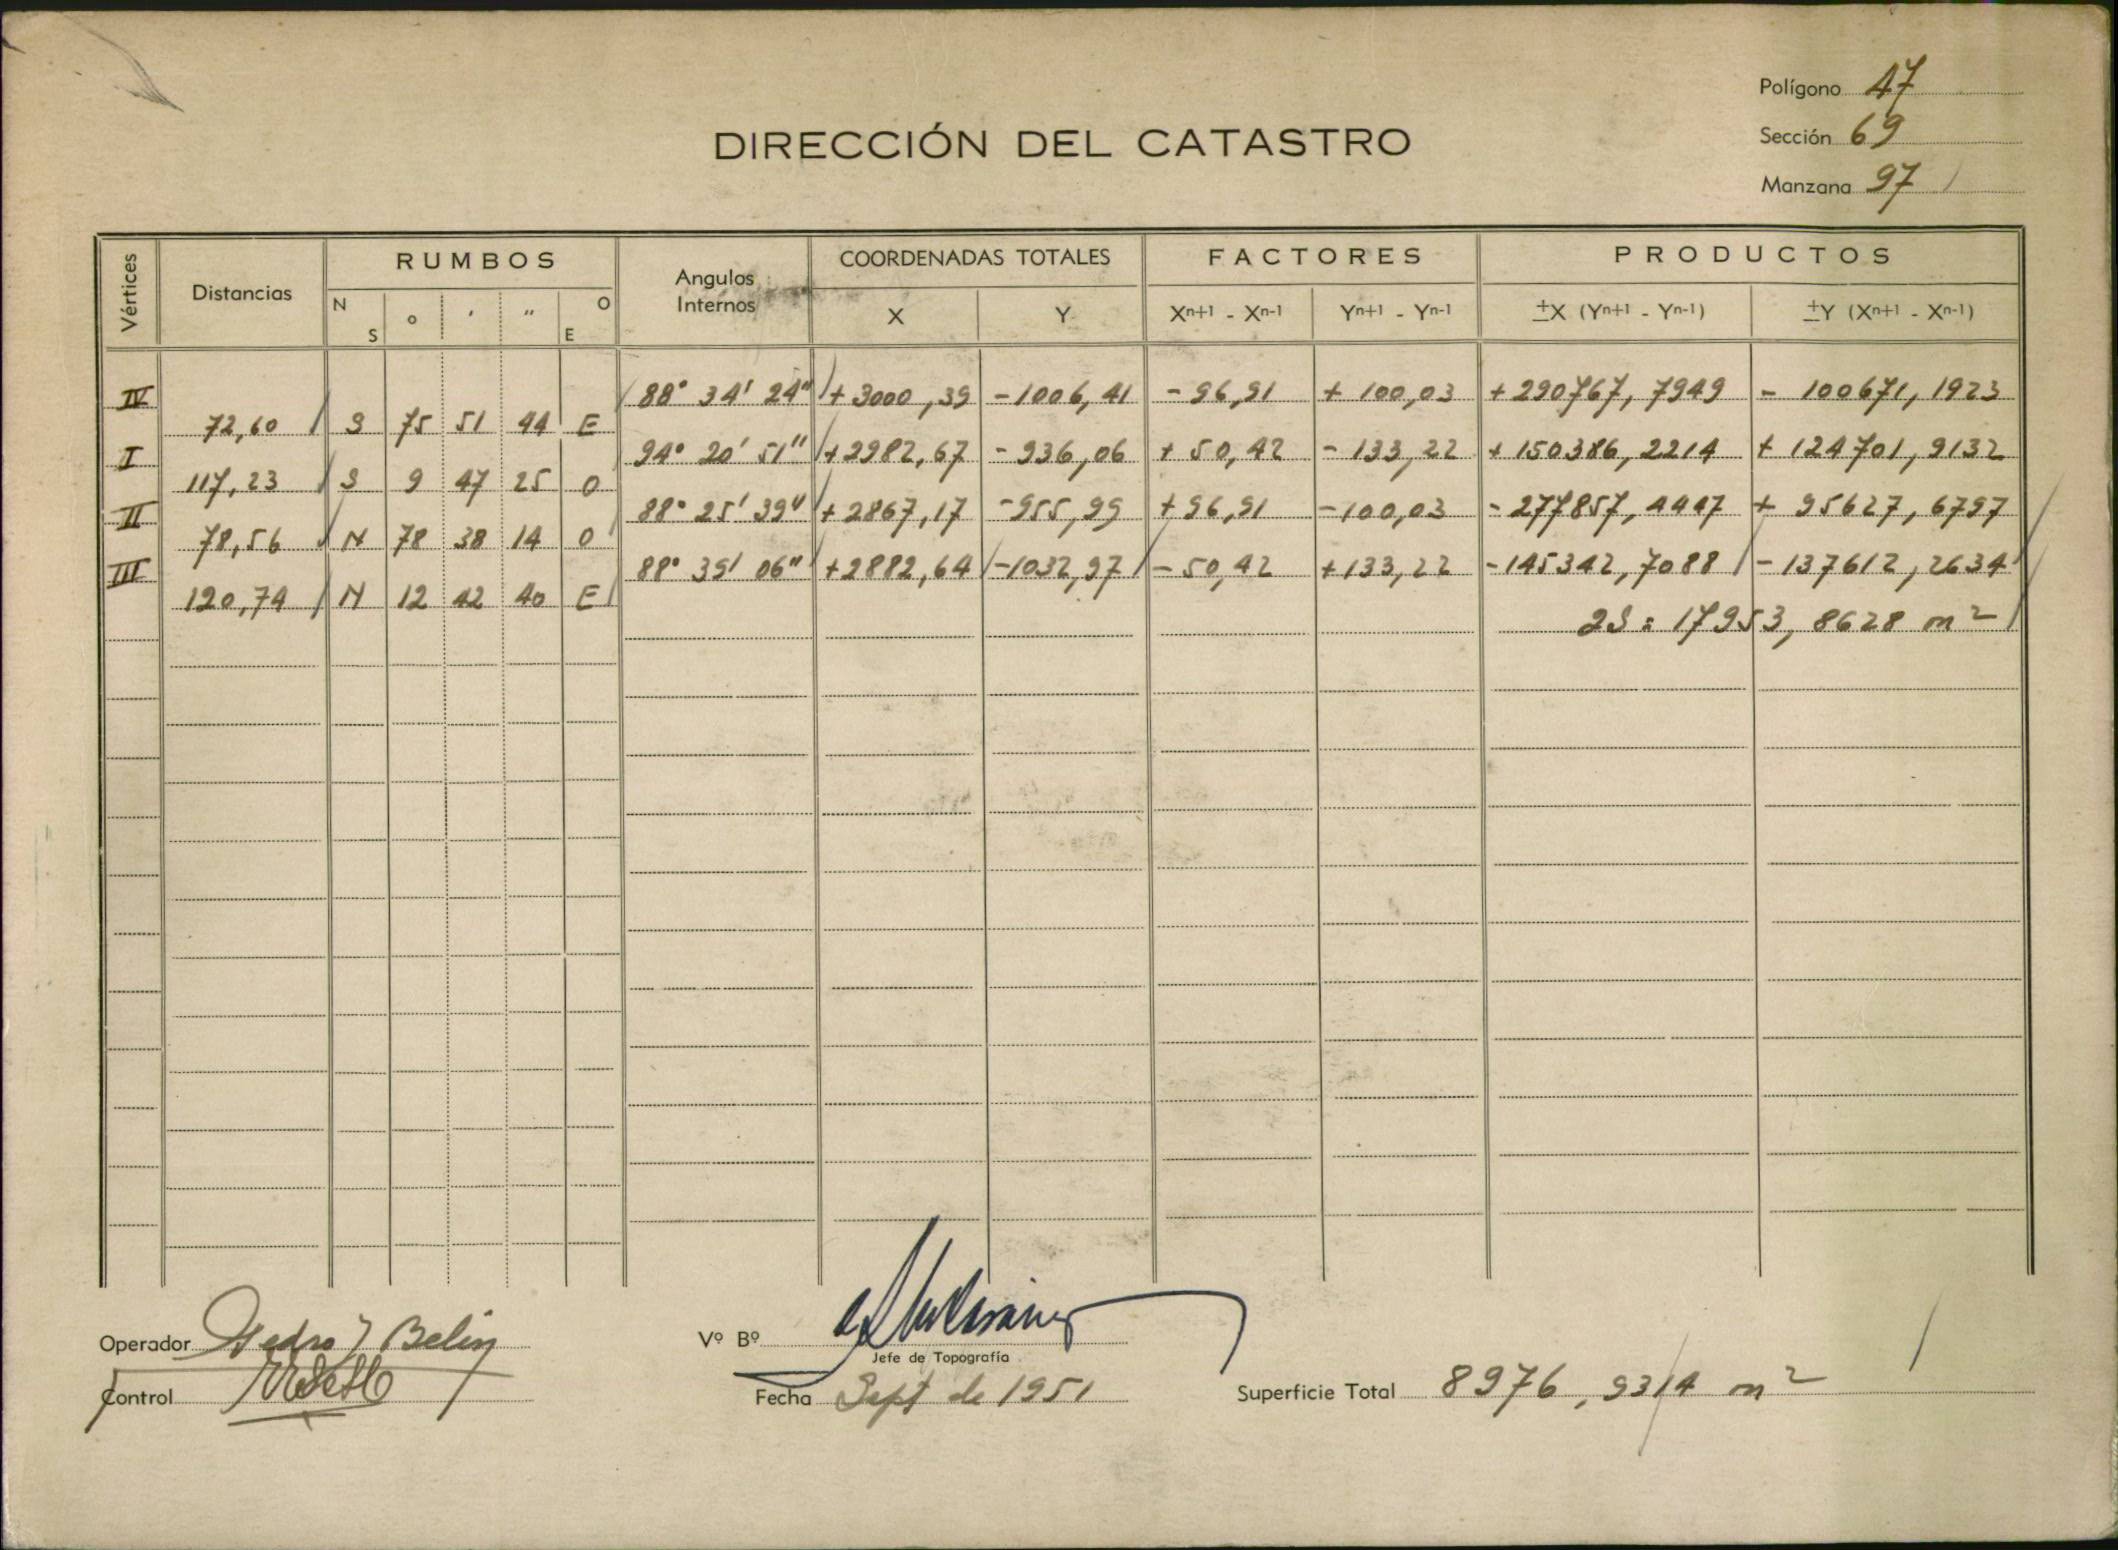 Polígono 47
DIRECCIÓN DEL CATASTRO
Sección 69
Manzana 97
Vértices Distancias RUMBOS Angulos Internos COORDENADAS TOTALES FACTORES PRODUCTOS
N S ° ' " O E X Y Xn+1 - Xn-1 Yn+1 - Yn-1 ±X (Yn+1 - Yn-1) ±Y (Xn+1 - Xn-1)
IV 88° 34' 24" +3000,39 -1006,41 -96,91 +100,03 +290767,7949 -100671,1923
72,60 S 75 51 44 E
I 94° 20' 51" +2982,67 -936,06 +50,42 -133,22 +150386,2214 +124701,9132
117,23 S 9 47 25 O
II 88° 25' 39" +2867,17 -955,99 +96,91 -100,03 -277857,4447 +95627,6797
78,56 N 78 38 14 O
III 88° 39' 06" +2882,64 -1032,97 -50,42 +133,22 -145342,7088 -137612,2634
120,74 N 12 42 40 E
2S = 17953,8628 m²
Operador Pedro J Belin
Vº Bº
Jefe de Topografía
Control
Fecha Sept de 1951
Superficie Total 8976,9314 m²